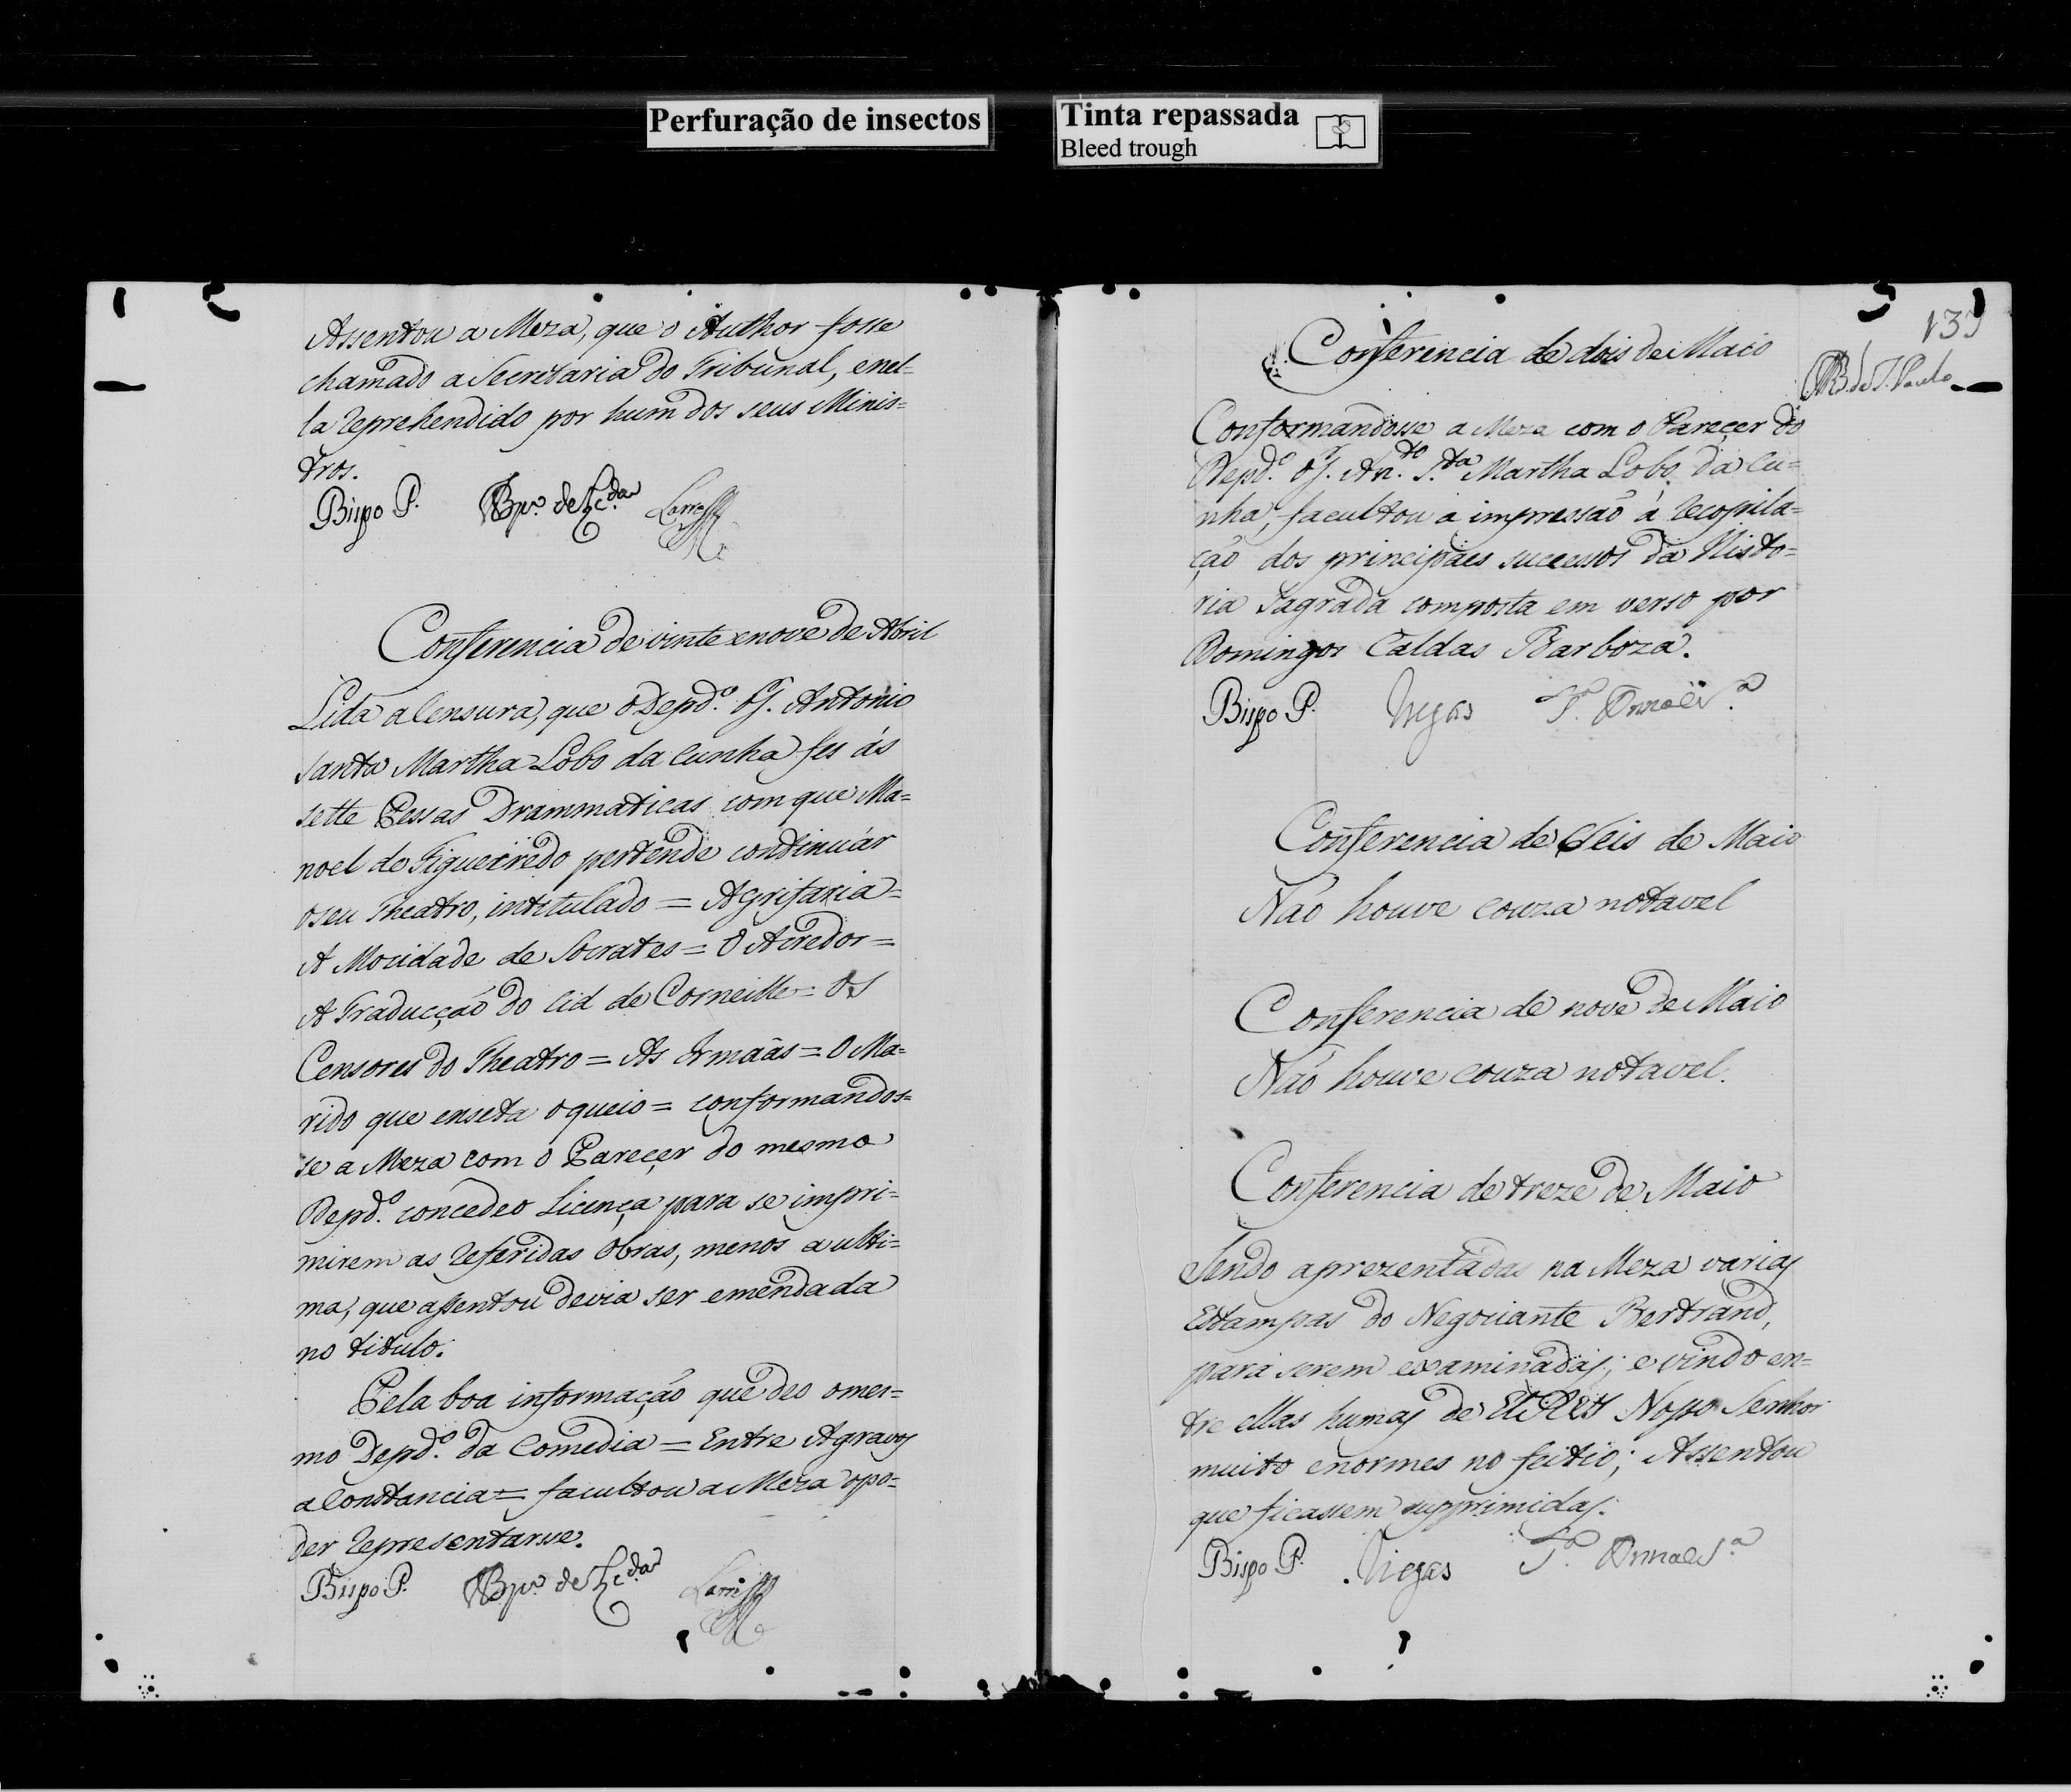 Perfuração de insectos
Tinta repassada
Bleed trough
Assentou a Meza, que o Author fosse
chamado a Secretaria do Tribunal, e nel=
la reprehendido por hum dos seus Minis=
tros.
Bispo P.
Conferencia de vinte e nove de Abril
Lida a Censura, que o Depdo. Fr. Antonio
Santa Martha Lobo da Cunha fes ás
sette Pessas Drammaticas com que Ma=
noel de Figueiredo pertende continuár
o seu Theatro, intitulado = A Grifaria =
A Mocidade de Socrates = O Acredor =
A Traducção do Cid de Corneille = Os
Censores do Theatro = As Irmaãs = O Ma=
rido que enseta o queio = conformandos=
se a Meza com o Parecer do mesmo
Depdo. concedeo Licença para se impri=
mirem as referidas Obras, menos a ulti=
ma, que assentou devia ser emendada
no titulo.
Pela boa informação que deo o mes=
mo Depdo. da Comedia = Entre Agravos
a Constancia = facultou a Meza o po=
der representarsse.
Bispo P.
139
Conferencia de dois de Maio
Conformandosse a Meza com o Parecer do
Depdo. Fr. Anto. Sta. Martha Lobo da Cu=
nha, facultou a impressaõ á recopila=
ção dos principaes sucessos da Histo=
ria Sagrada composta em verso por
Domingos Caldas Barboza.
Bispo P. Viegas
Conferencia de Seis de Maio
Não houve couza notavel
Conferencia de nove de Maio
Não houve couza notavel.
Conferencia de treze de Maio
Sendo aprezentadas na Meza varias
Estampas do Negociante Bertrand,
para serem examinadas; e vindo en=
tre ellas humas de ElREY Nosso Senhor
muito enormes no feitio; Assentou
que ficassem supprimidas.
Bispo P. Viegas